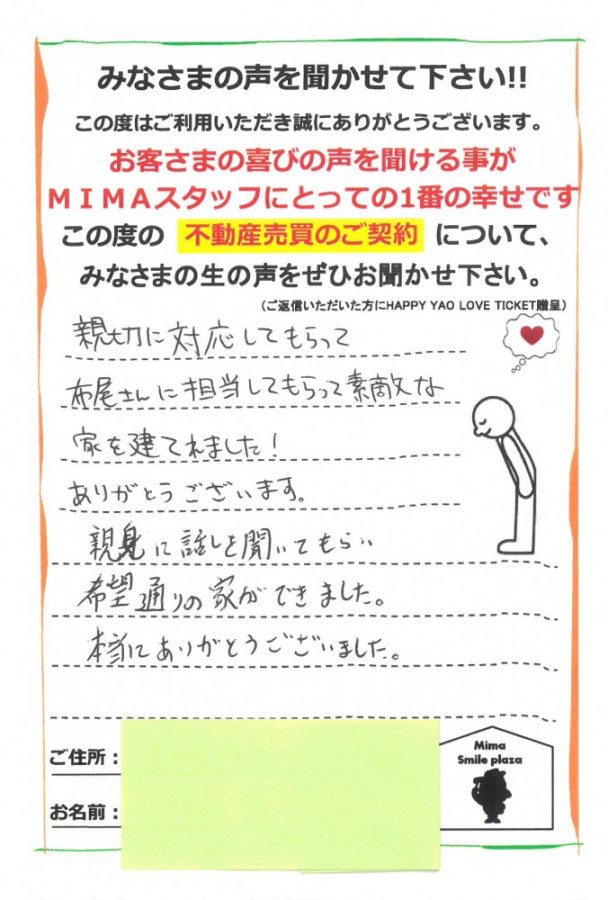 みなさまの声を聞かせて下さい!!
この度はご利用いただき誠にありがとうございます。
お客さまの喜びの声を聞ける事が
ＭＩＭＡスタッフにとっての1番の幸せです
この度の 不動産売買のご契約 について、
みなさまの生の声をぜひお聞かせ下さい。
（ご返信いただいた方にHAPPY YAO LOVE TICKET贈呈）
親切に対応してもらって
布尾さんに担当してもらって素敵な
家を建てれました！
ありがとうございます。
親身に話しを聞いてもらい
希望通りの家ができました。
本当にありがとうございました。
ご住所：
お名前：
Mima
Smile plaza